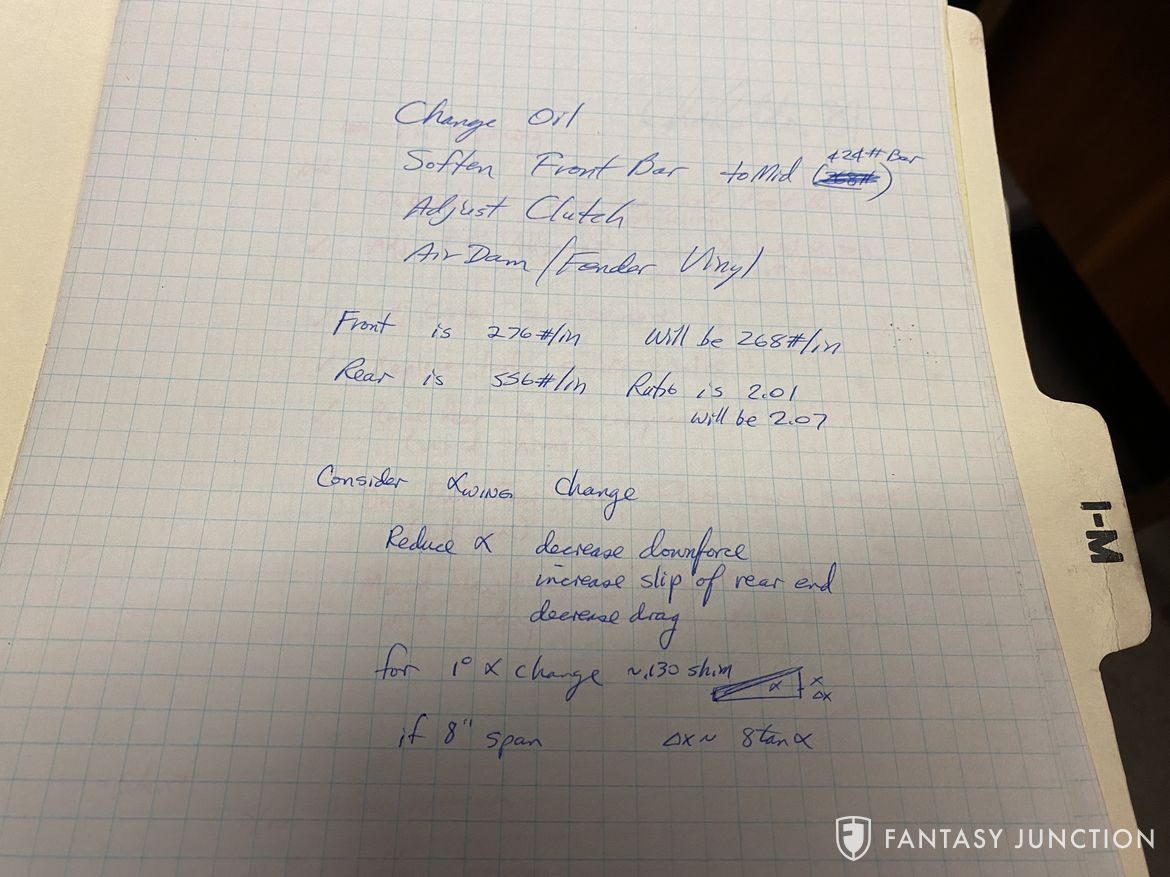 Change Oil
424# Bar
Soften Front Bar to Mid (268#)
Adjust Clutch
Air Dam / Fender Vinyl
Front is 276#/in Will be 268#/in
Rear is 556#/in Ratio is 2.01
will be 2.07
Consider αWING Change
Reduce α decrease downforce
increase slip of rear end
decrease drag
for 1° α change ~.130 shim
α x
Δx
if 8" span Δx ~ 8 tan α
I-M
FANTASY JUNCTION